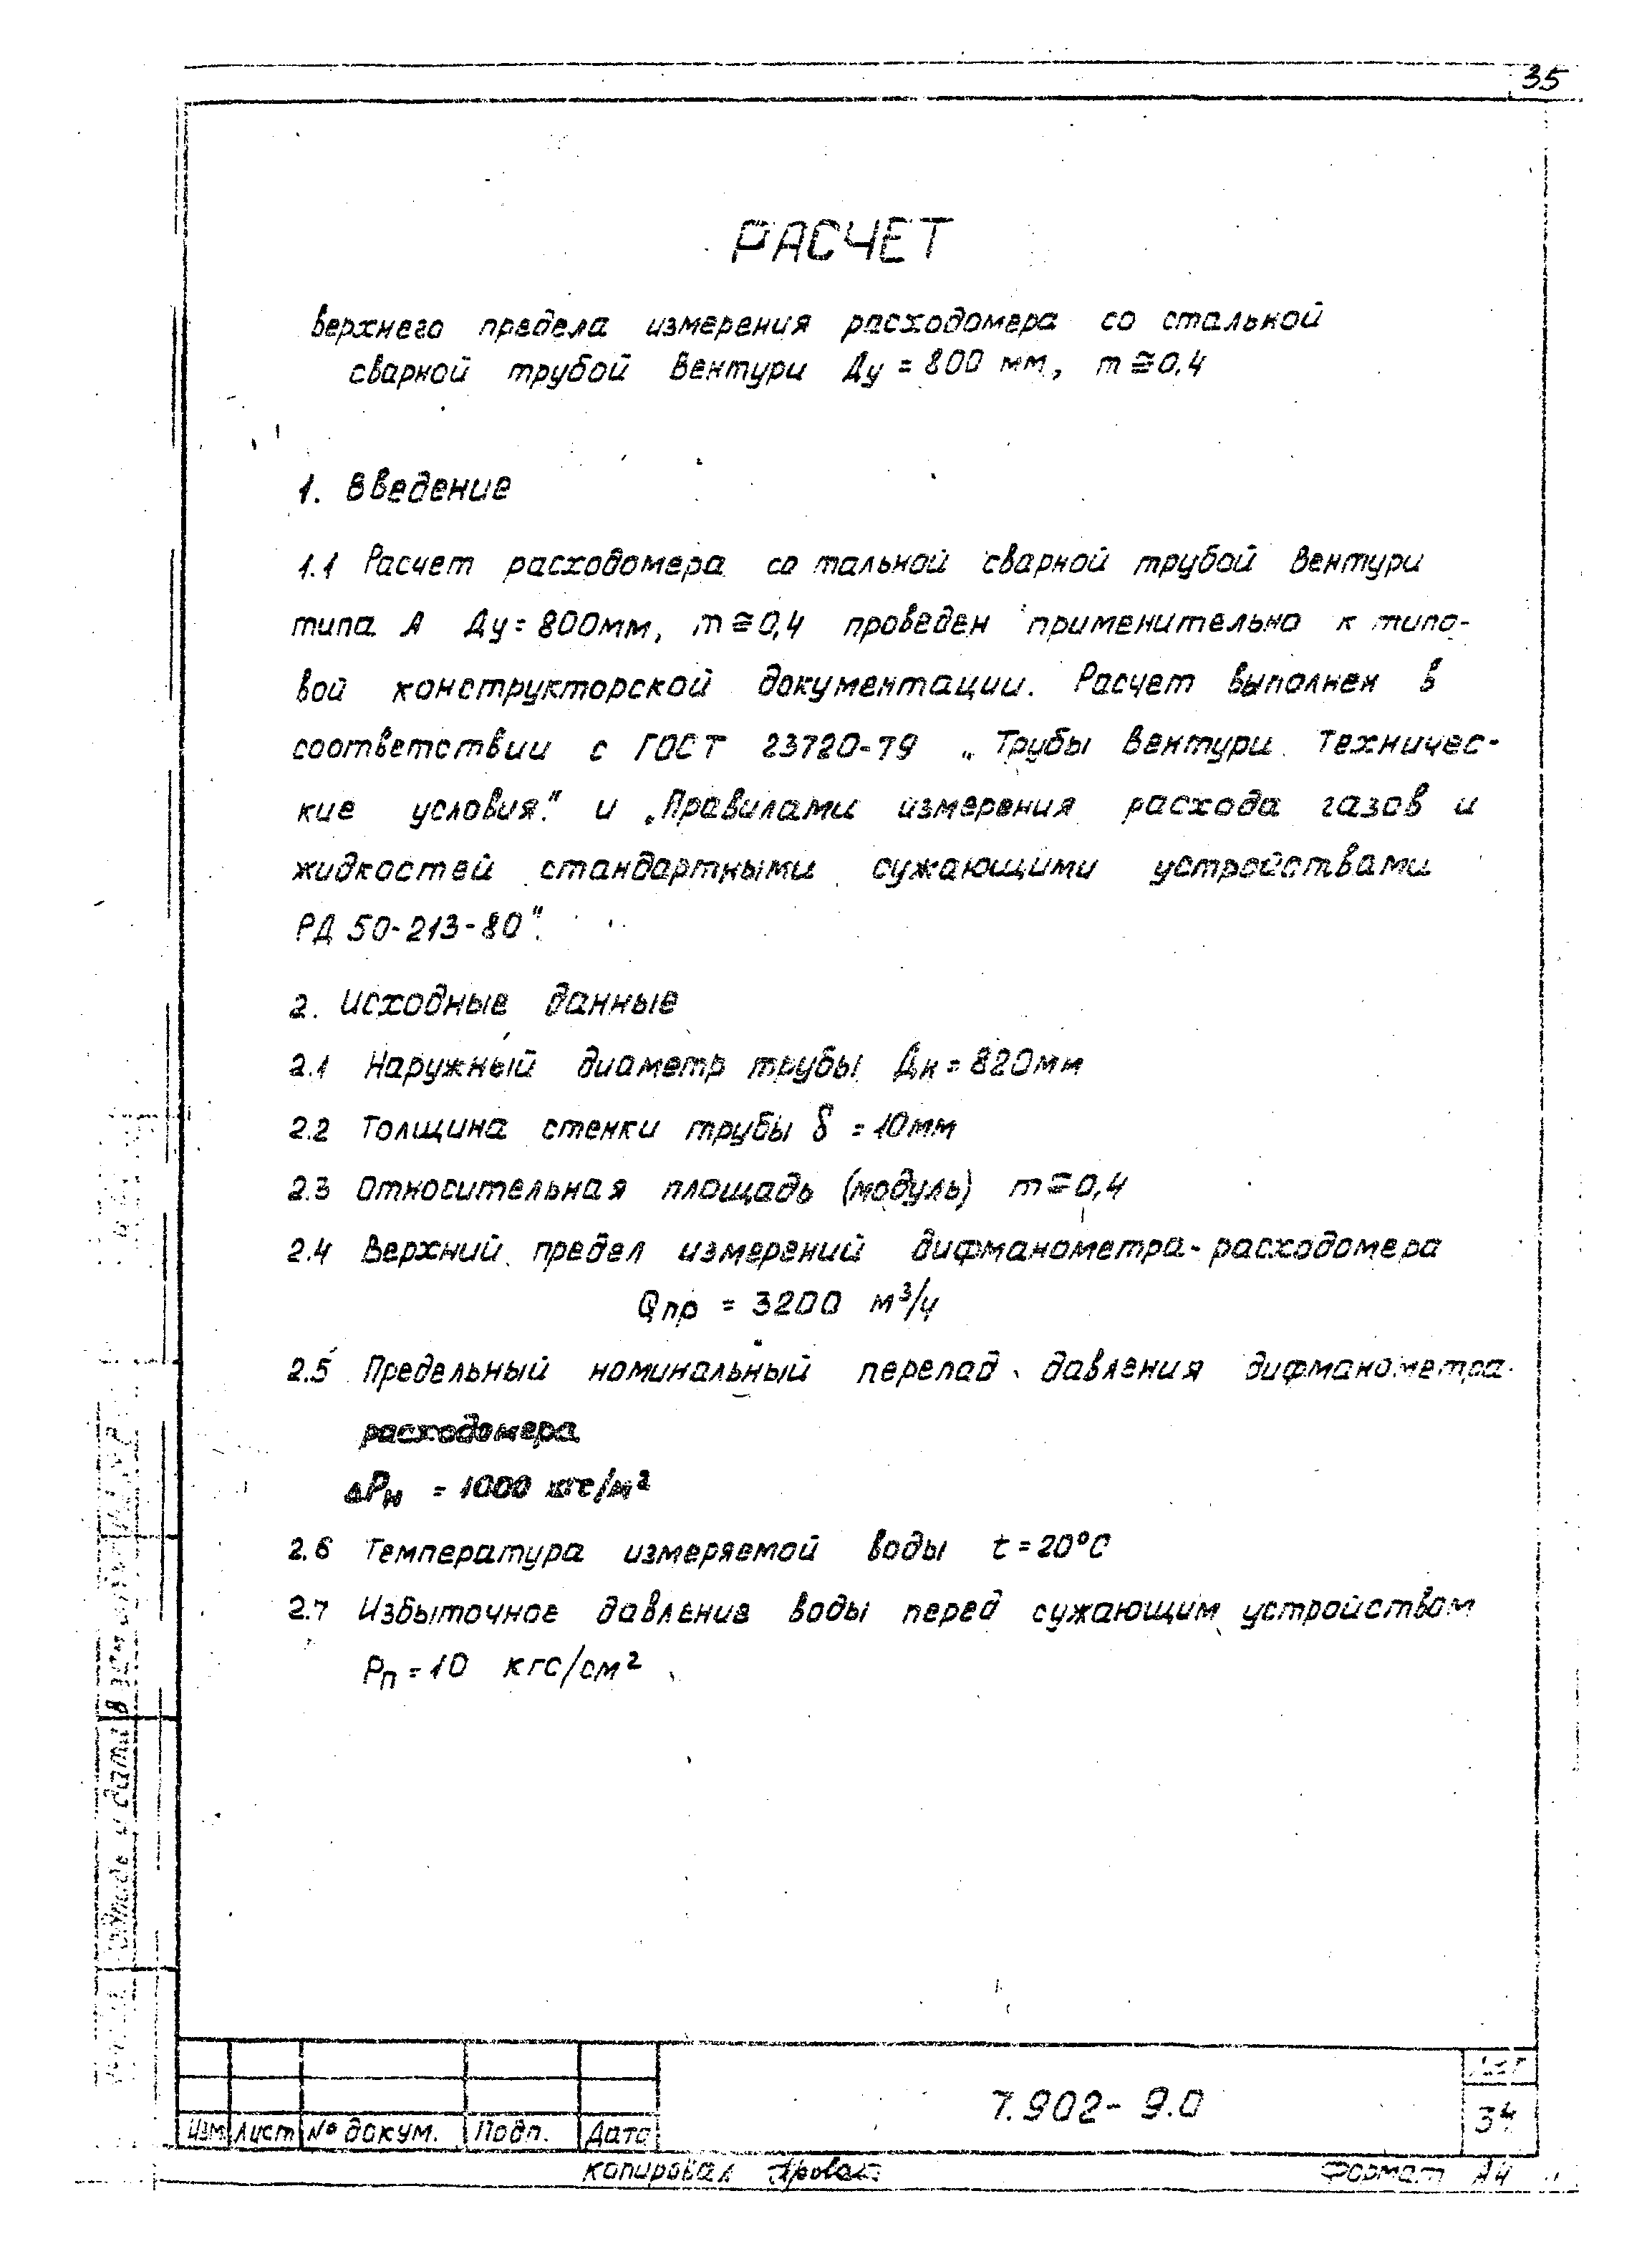 35
РАСЧЕТ
верхнего предела измерения расходомера со стальной
сварной трубой Вентури Ду = 800 мм, m ≅ 0,4
1. Введение
1.1 Расчет расходомера со тальной сварной трубой Вентури
типа А Ду = 800мм, m ≅ 0,4 проведен применительно к типо-
вой конструкторской документации. Расчет выполнен в
соответствии с ГОСТ 23720-79 „Трубы Вентури. Техничес-
кие условия." и „Правилами измерения расхода газов и
жидкостей стандартными сужающими устройствами
РД 50-213-80".
2. Исходные данные
2.1 Наружный диаметр трубы Дн = 820мм
2.2 Толщина стенки трубы δ = 10мм
2.3 Относительная площадь (модуль) m ≅ 0,4
2.4 Верхний предел измерений дифманометра-расходомера
Qпр = 3200 м³/ч
2.5 Предельный номинальный перепад давления дифманометра-
расходомера
ΔPн = 1000 кгс/м²
2.6 Температура измеряемой воды t = 20°С
2.7 Избыточное давление воды перед сужающим устройством
Рп = 10 кгс/см²
Подпись и дата
Изм Лист № докум. Подп. Дата
7.902-9.0
Лист
34
копировал
Формат А4